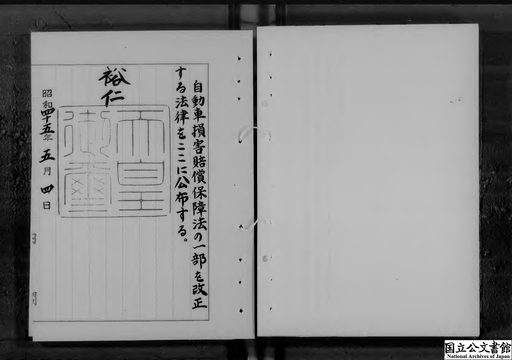 自動車損害賠償保障法の一部を改正
する法律をここに公布する。
裕仁
天皇
御璽
昭和四十五年五月四日
国立公文書館
National Archives of Japan